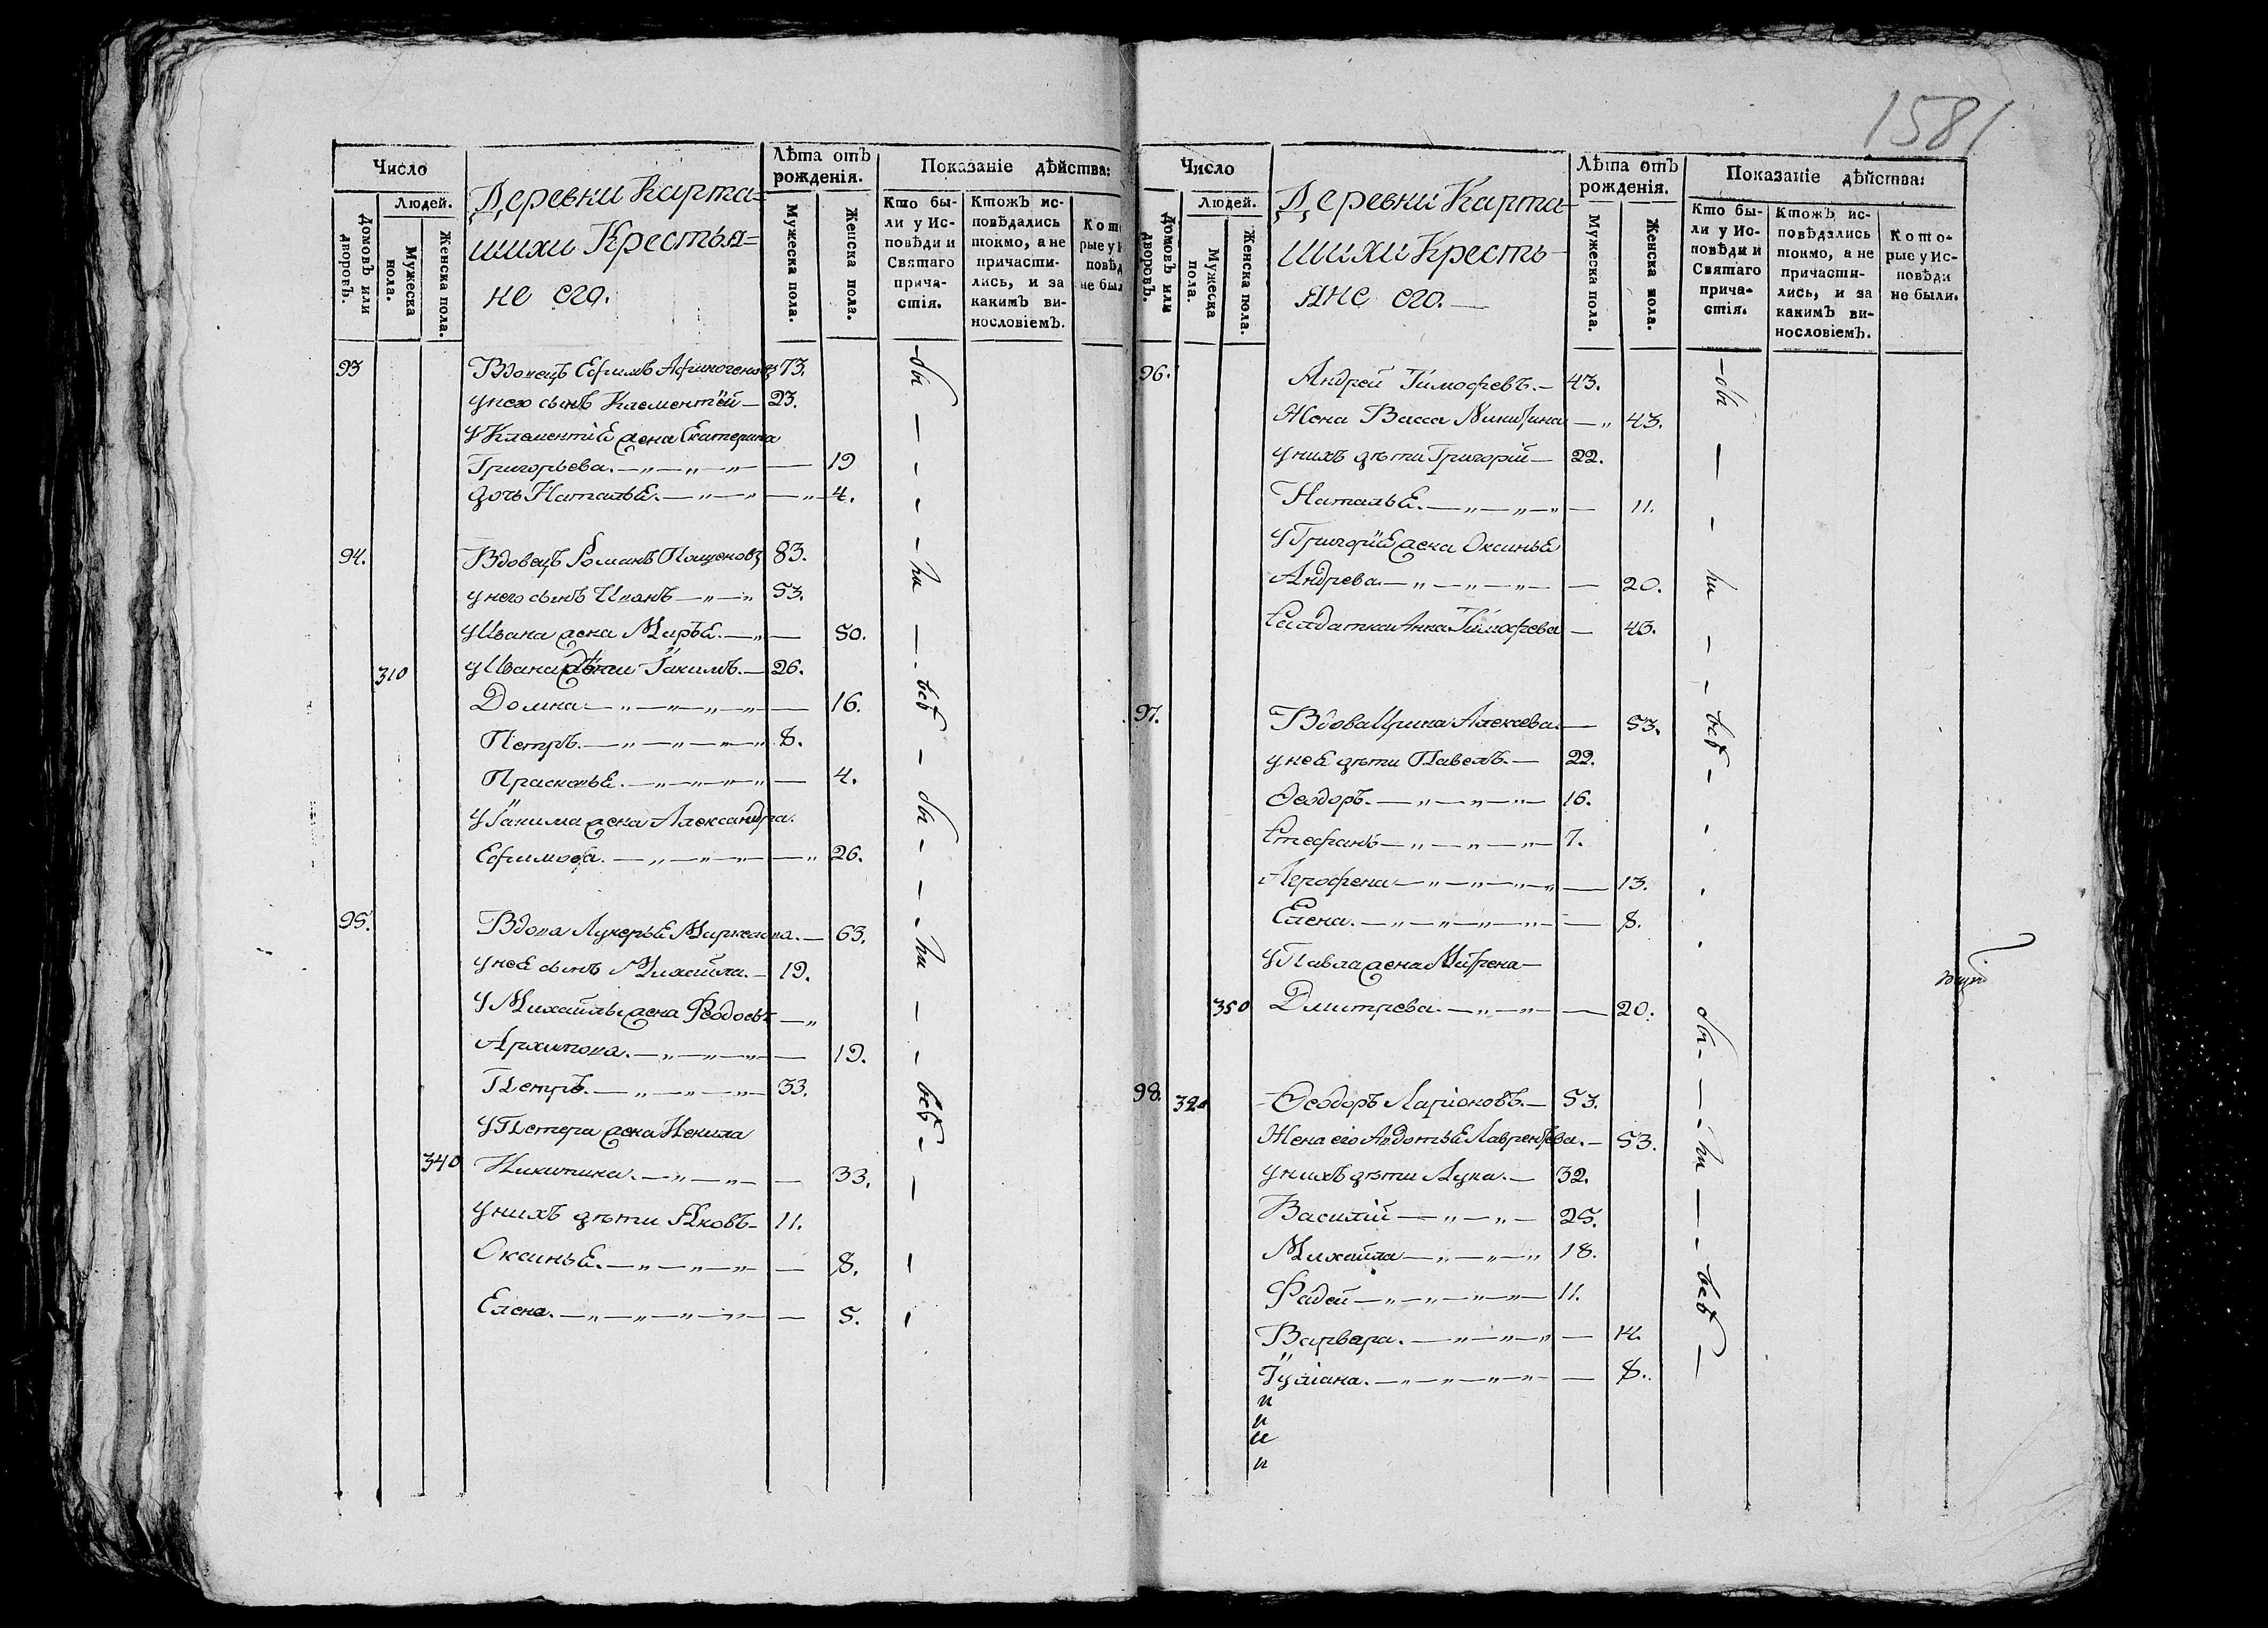 1581
Число
Людей.
Домовъ или дворовъ.
Мужеска пола.
Женска пола.
Деревни Карта-
шихи Крестья=
не его.
Лѣта отъ рожденія.
Мужеска пола.
Женска пола.
Показаніе дѣйства:
Кто бы-
ли у Ис-
повѣди и
Святаго
прича-
стія.
Ктожъ ис-
повѣдались
токмо, а не
причасти-
лись, и за
какимъ ви-
нословіемъ.
Кото
рые у И
повѣд
не был
93 Вдовецъ Ефимъ Афиногеновъ 73.
у него сынъ Клементïй — 23.
у Климентiя жена Екатерина
Григорьева. — 19
дочь Наталья. — 4.
94. Вдовецъ Романъ 83.
у него сынъ Иванъ — 53.
у Ивана жена Марья. — 50.
310 у Ивана дѣти Iакимъ. — 26.
Домна — 16.
Петръ. — 8.
Прасковья. — 4.
у Iакима жена Александра.
Ефимова. — 26.
95. Вдова Лукерья Маркелова. — 63.
у нея сынъ Михайла. — 19.
у Михайлы жена Феодосья —
Архипова. — 19.
Петръ. — 33.
у Петра жена Ненила
340 Никитина. — 33.
у нихъ дѣти Яковъ — 11.
Оксинья. — 8.
Елена. — 5.
бы — ли — всѣ — бы — ли — всѣ —
Число
Людей.
Домовъ или дворовъ.
Мужеска пола.
Женска пола.
Деревни Карта-
шихи Кресть-
яне его. —
Лѣта отъ рожденія.
Мужеска пола.
Женска пола.
Показаніе дѣйства:
Кто бы-
ли у Ис-
повѣди и
Святаго
прича-
стія.
Ктожъ ис-
повѣдались
токмо, а не
причасти-
лись, и за
какимъ ви-
нословіемъ.
Кото-
рые у Ис-
повѣди
не были.
96. Андрей Тимофевъ. — 43.
Жена Васса Никитина — 43.
у нихъ дѣти Григорiй — 22.
Наталья. — 11.
у Григорïя жена Оксинья
Андрева. — 20.
Салдатка Анна Тимофева — 43.
97. Вдова Ирина Алексева. — 53.
у нея дѣти Павелъ. — 22.
Ѳеодоръ. — 16.
Стефанъ — 7.
Агрофена — 13.
Елена. — 8.
у Павла жена Матрена —
350 Дмитрева. — 20.
98. 320 Ѳеодоръ Ларiоновъ. — 53.
Жена его Авдотья Лаврентева. — 53.
у нихъ дѣти Лука. — 32.
Василïй — 25.
Михайла — 18.
Фадей — 11.
Варвара. — 14.
Iулiана. — 8.
бы — ли — всѣ — бы — ли — всѣ —